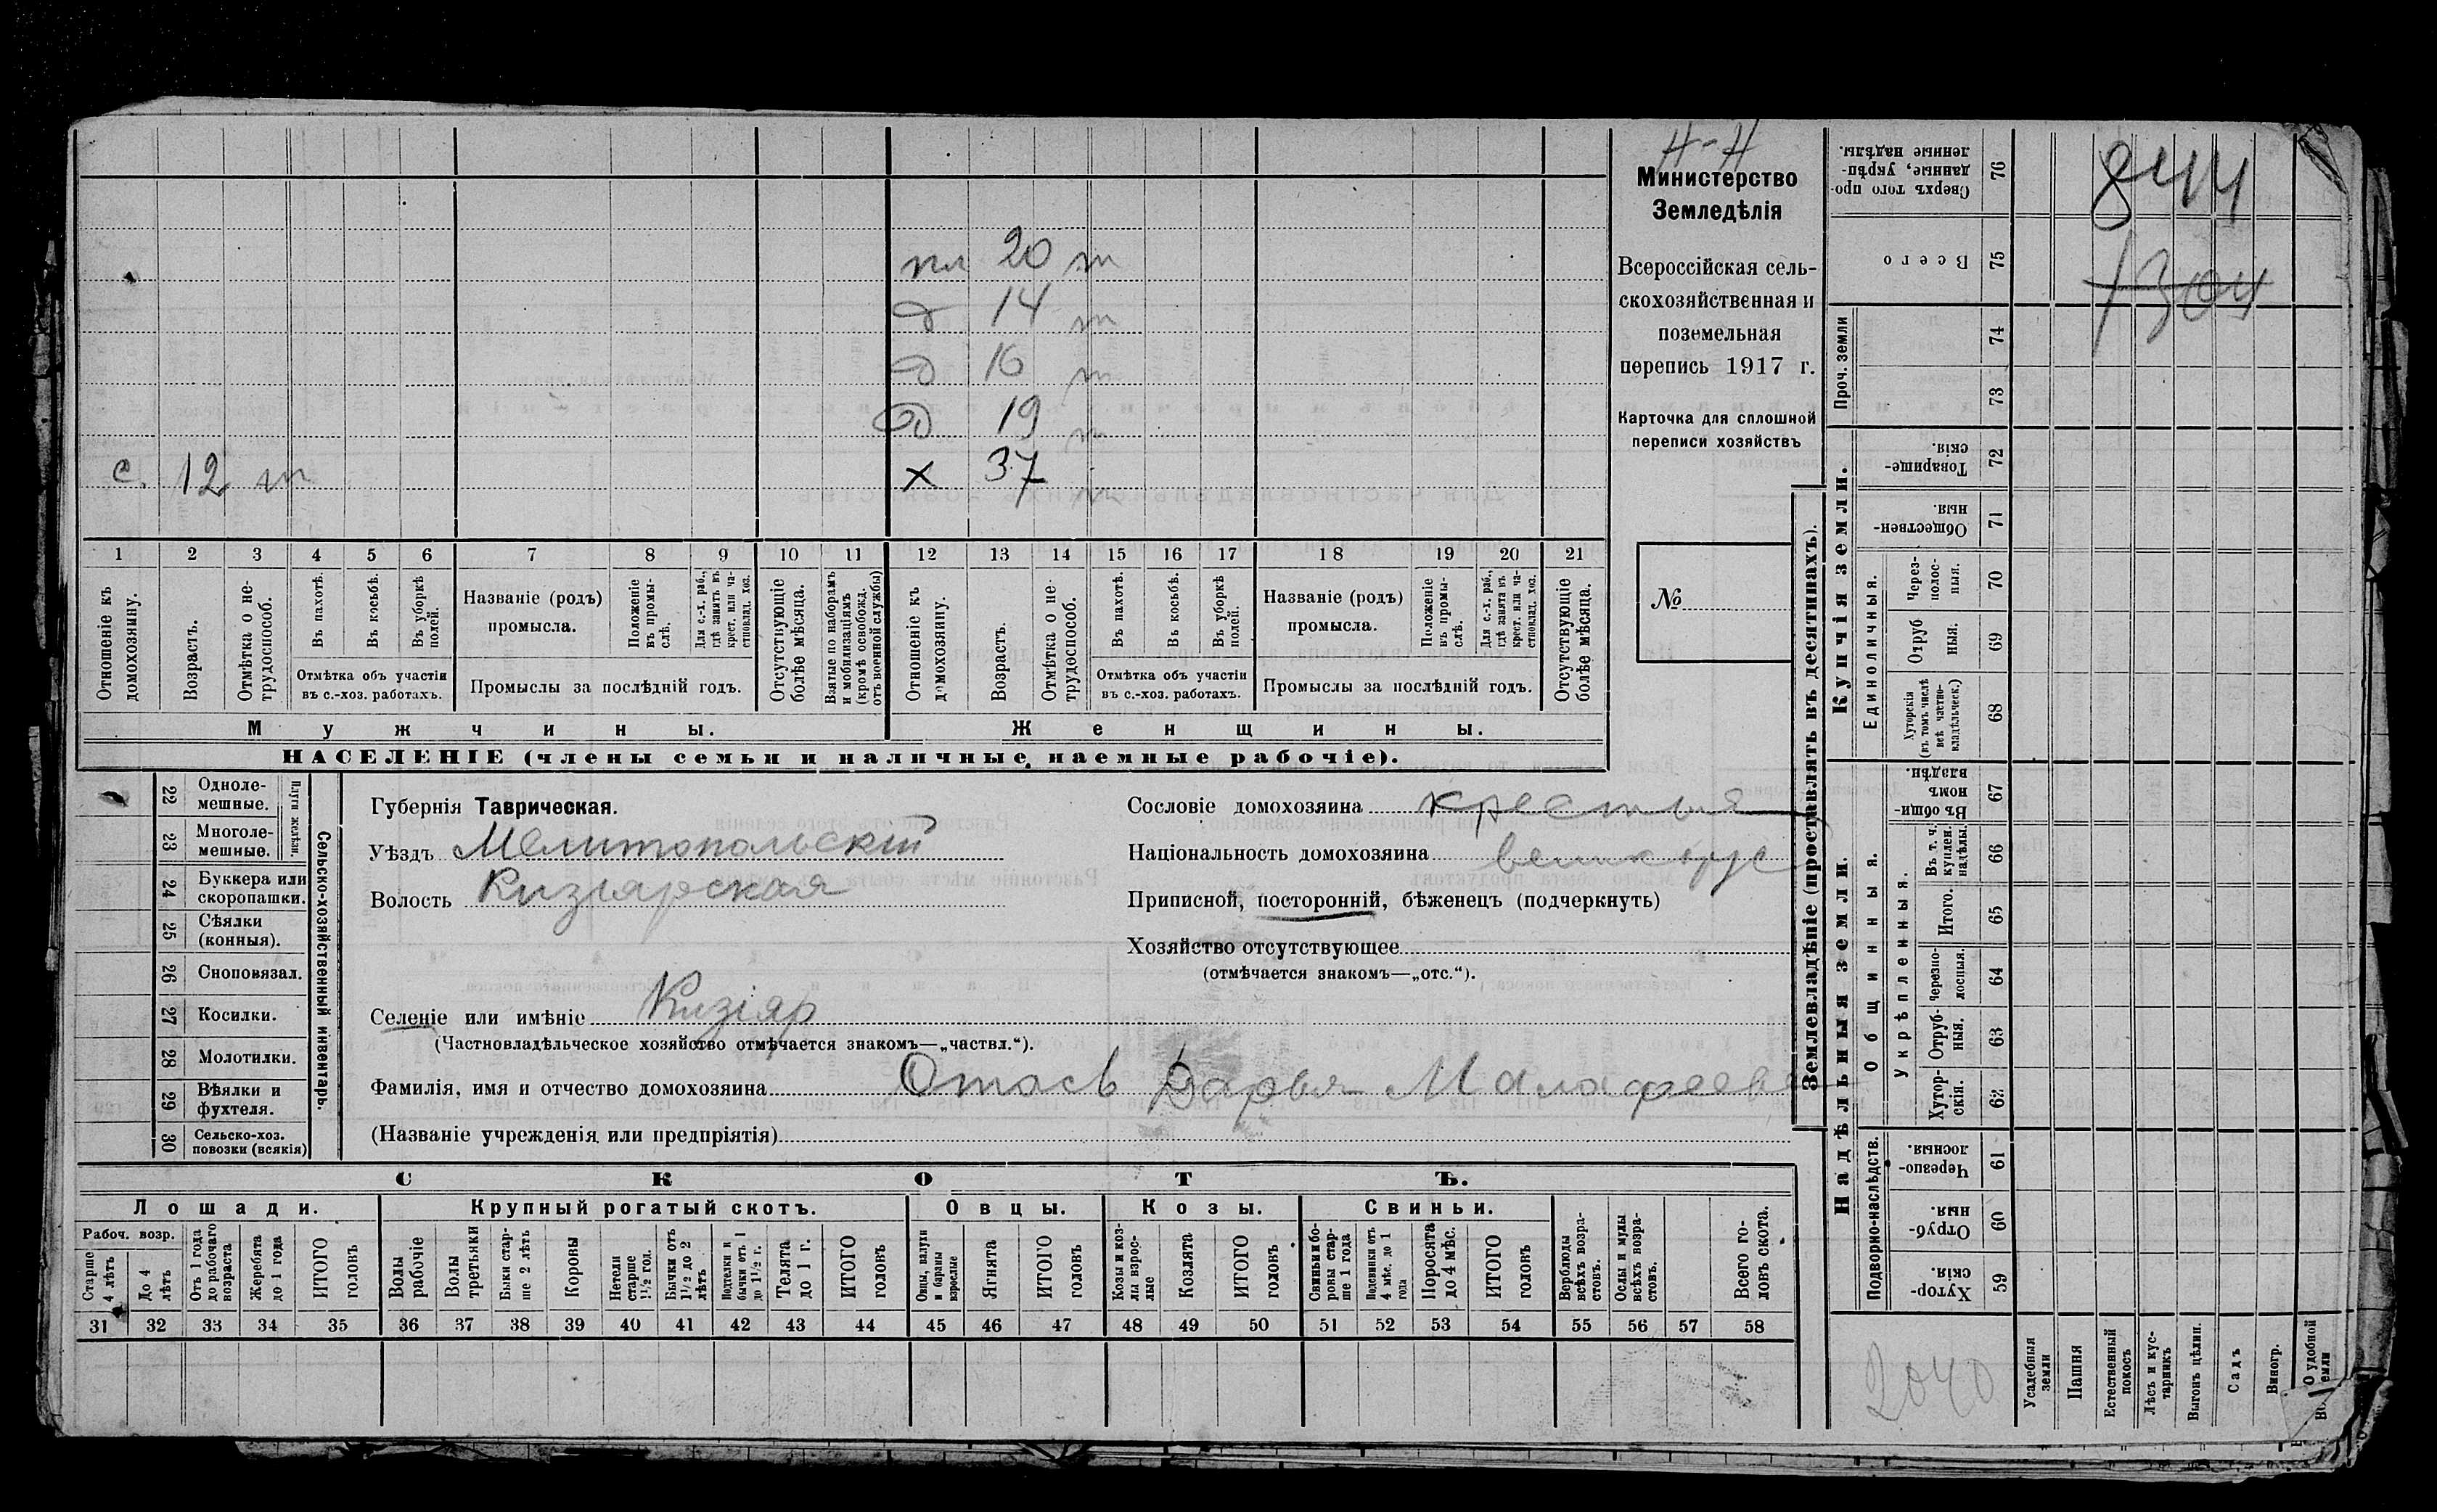 Н-Н
Министерство
Земледѣлія
Всероссійская сель-
скохозяйственная и
поземельная
перепись 1917 г.
Карточка для сплошной
переписи хозяйствъ
№
пл 20 т
д 14 т
д 16 т
д 19 т
с. 12 т х 37 т
1 2 3 4 5 6 7 8 9 10 11 12 13 14 15 16 17 18 19 20 21
Отношеніе къ домохозяину.
Возрастъ.
Отмѣтка о не-трудоспособ.
Въ пахотѣ.
Въ косьбѣ.
Въ уборкѣ полей.
Отмѣтка объ участіи
въ с.-хоз. работахъ.
Названіе (родъ)
промысла.
Положеніе въ промы-слѣ.
Для с.-х. раб., гдѣ занятъ въ крест. или ча-стновлад. хоз.
Промыслы за послѣдній годъ.
Отсутствующіе болѣе мѣсяца.
Взятые по наборамъ и мобилизаціямъ (кромѣ освобожд. отъ военной службы)
Отношеніе къ домохозяину.
Возрастъ.
Отмѣтка о не-трудоспособ.
Въ пахотѣ.
Въ косьбѣ.
Въ уборкѣ полей.
Отмѣтка объ участіи
въ с.-хоз. работахъ.
Названіе (родъ)
промысла.
Положеніе въ промы-слѣ.
Для с.-х. раб., гдѣ занята въ крест. или ча-стновлад. хоз.
Промыслы за послѣдній годъ.
Отсутствующіе болѣе мѣсяца.
Мужчины. Женщины.
НАСЕЛЕНІЕ (члены семьи и наличные наемные рабочіе).
Сельско-хозяйственный инвентарь.
Плуги желѣзн.
22 Одноле-
мешные.
23 Многоле-
мешные.
24 Буккера или
скоропашки.
25 Сѣялки
(конныя).
26 Сноповязал.
27 Косилки.
28 Молотилки.
29 Вѣялки и
фухтеля.
30 Сельско-хоз.
повозки (всякія)
Губернія Таврическая.
Уѣздъ Мелитопольскій
Волость Кизіярская
Селеніе или имѣніе Кизіяр
(Частновладѣльческое хозяйство отмѣчается знакомъ—„частвл.“).
Фамилія, имя и отчество домохозяина Дарья Малафеева
(Названіе учрежденія или предпріятія)
Сословіе домохозяина крестья
Національность домохозяина великорус
Приписной, посторонній, бѣженецъ (подчеркнуть)
Хозяйство отсутствующее
(отмѣчается знакомъ—„отс.“).
СКОТЪ.
Лошади. Крупный рогатый скотъ. Овцы. Козы. Свиньи.
Рабоч. возр.
Старше 4 лѣтъ
До 4 лѣтъ
Отъ 1 года до рабочаго возраста
Жеребята до 1 года
ИТОГО головъ
Волы рабочіе
Волы третьяки
Быки стар-ше 2 лѣтъ
Коровы
Нетели старше 1½ год.
Бычки отъ 1½ до 2 лѣтъ
Подтелки и бычки отъ 1 до 1½ г.
Телята до 1 г.
ИТОГО головъ
Овцы, валухи и бараны взрослые
Ягнята
ИТОГО головъ
Козы и коз-лы взрос-лые
Козлята
ИТОГО головъ
Свиньи и бо-ровы стар-ше 1 года
Подсвинки отъ 4 мѣс. до 1 года
Поросята до 4 мѣс.
ИТОГО головъ
Верблюды всѣхъ возра-стовъ.
Ослы и мулы всѣхъ возра-стовъ.
Всего го-ловъ скота.
31 32 33 34 35 36 37 38 39 40 41 42 43 44 45 46 47 48 49 50 51 52 53 54 55 56 57 58
Землевладѣніе (проставлять въ десятинахъ).
Купчія земли.
Надѣльныя земли.
Сверхъ того про-данные, укрѣп-ленные надѣлы. 76
Всего 75
Проч. земли
74
73
Товарище-скія. 72
Обществен-ныя. 71
Единоличныя.
Через-полос-ныя. 70
Отруб ныя. 69
Хуторскія (въ томъ числѣ всѣ частно-владѣльческ.) 68
Въ общи-номъ владѣн. 67
Общинныя.
Укрѣпленныя.
Въ т. ч. куплен. надѣлы. 66
Итого. 65
Черезпо-лосныя. 64
Отруб-ныя. 63
Хутор-скія. 62
Подворно-наслѣдств.
Черезпо-лосныя. 61
Отруб-ныя. 60
Хутор-скія. 59
Усадебныя земли
Пашня
Естественный покосъ
Лѣсъ и кус-тарникъ
Выгонъ цѣлин.
Садъ
Виногр.
удобной
2040